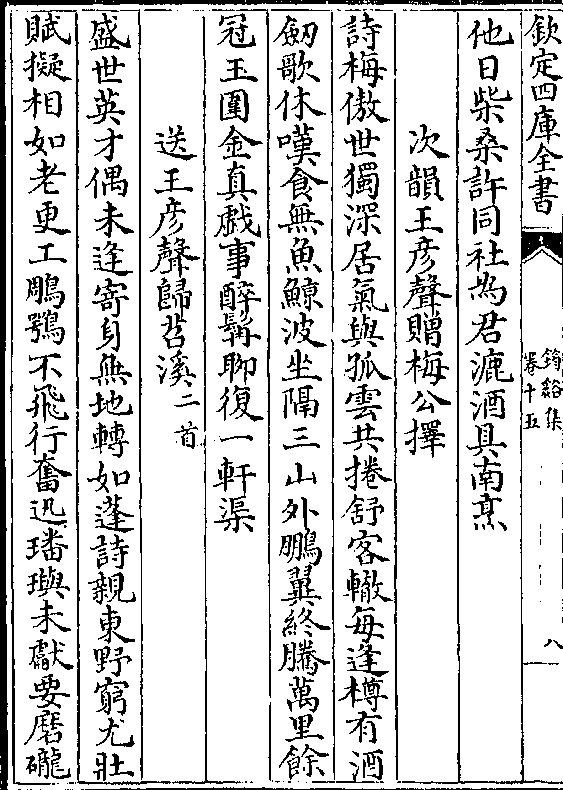 欽定四庫全書
筠谿集
卷十五
八
他日柴桑許同社為君漉酒具南烹
次韻王彦聲贈梅公擇
詩梅傲世獨深居氣與孤雲共捲舒客轍每逢樽有酒
劒歌休嘆食無魚鯨波坐隔三山外鵬翼終騰萬里餘
冠玉圍金真戲事醉髯聊復一軒渠
送王彦聲歸苕溪二首
盛世英才偶未逢寄身無地轉如蓬詩親東野窮尤壯
賦擬相如老更工鵰鶚不飛行奮迅璠璵未獻要磨礲